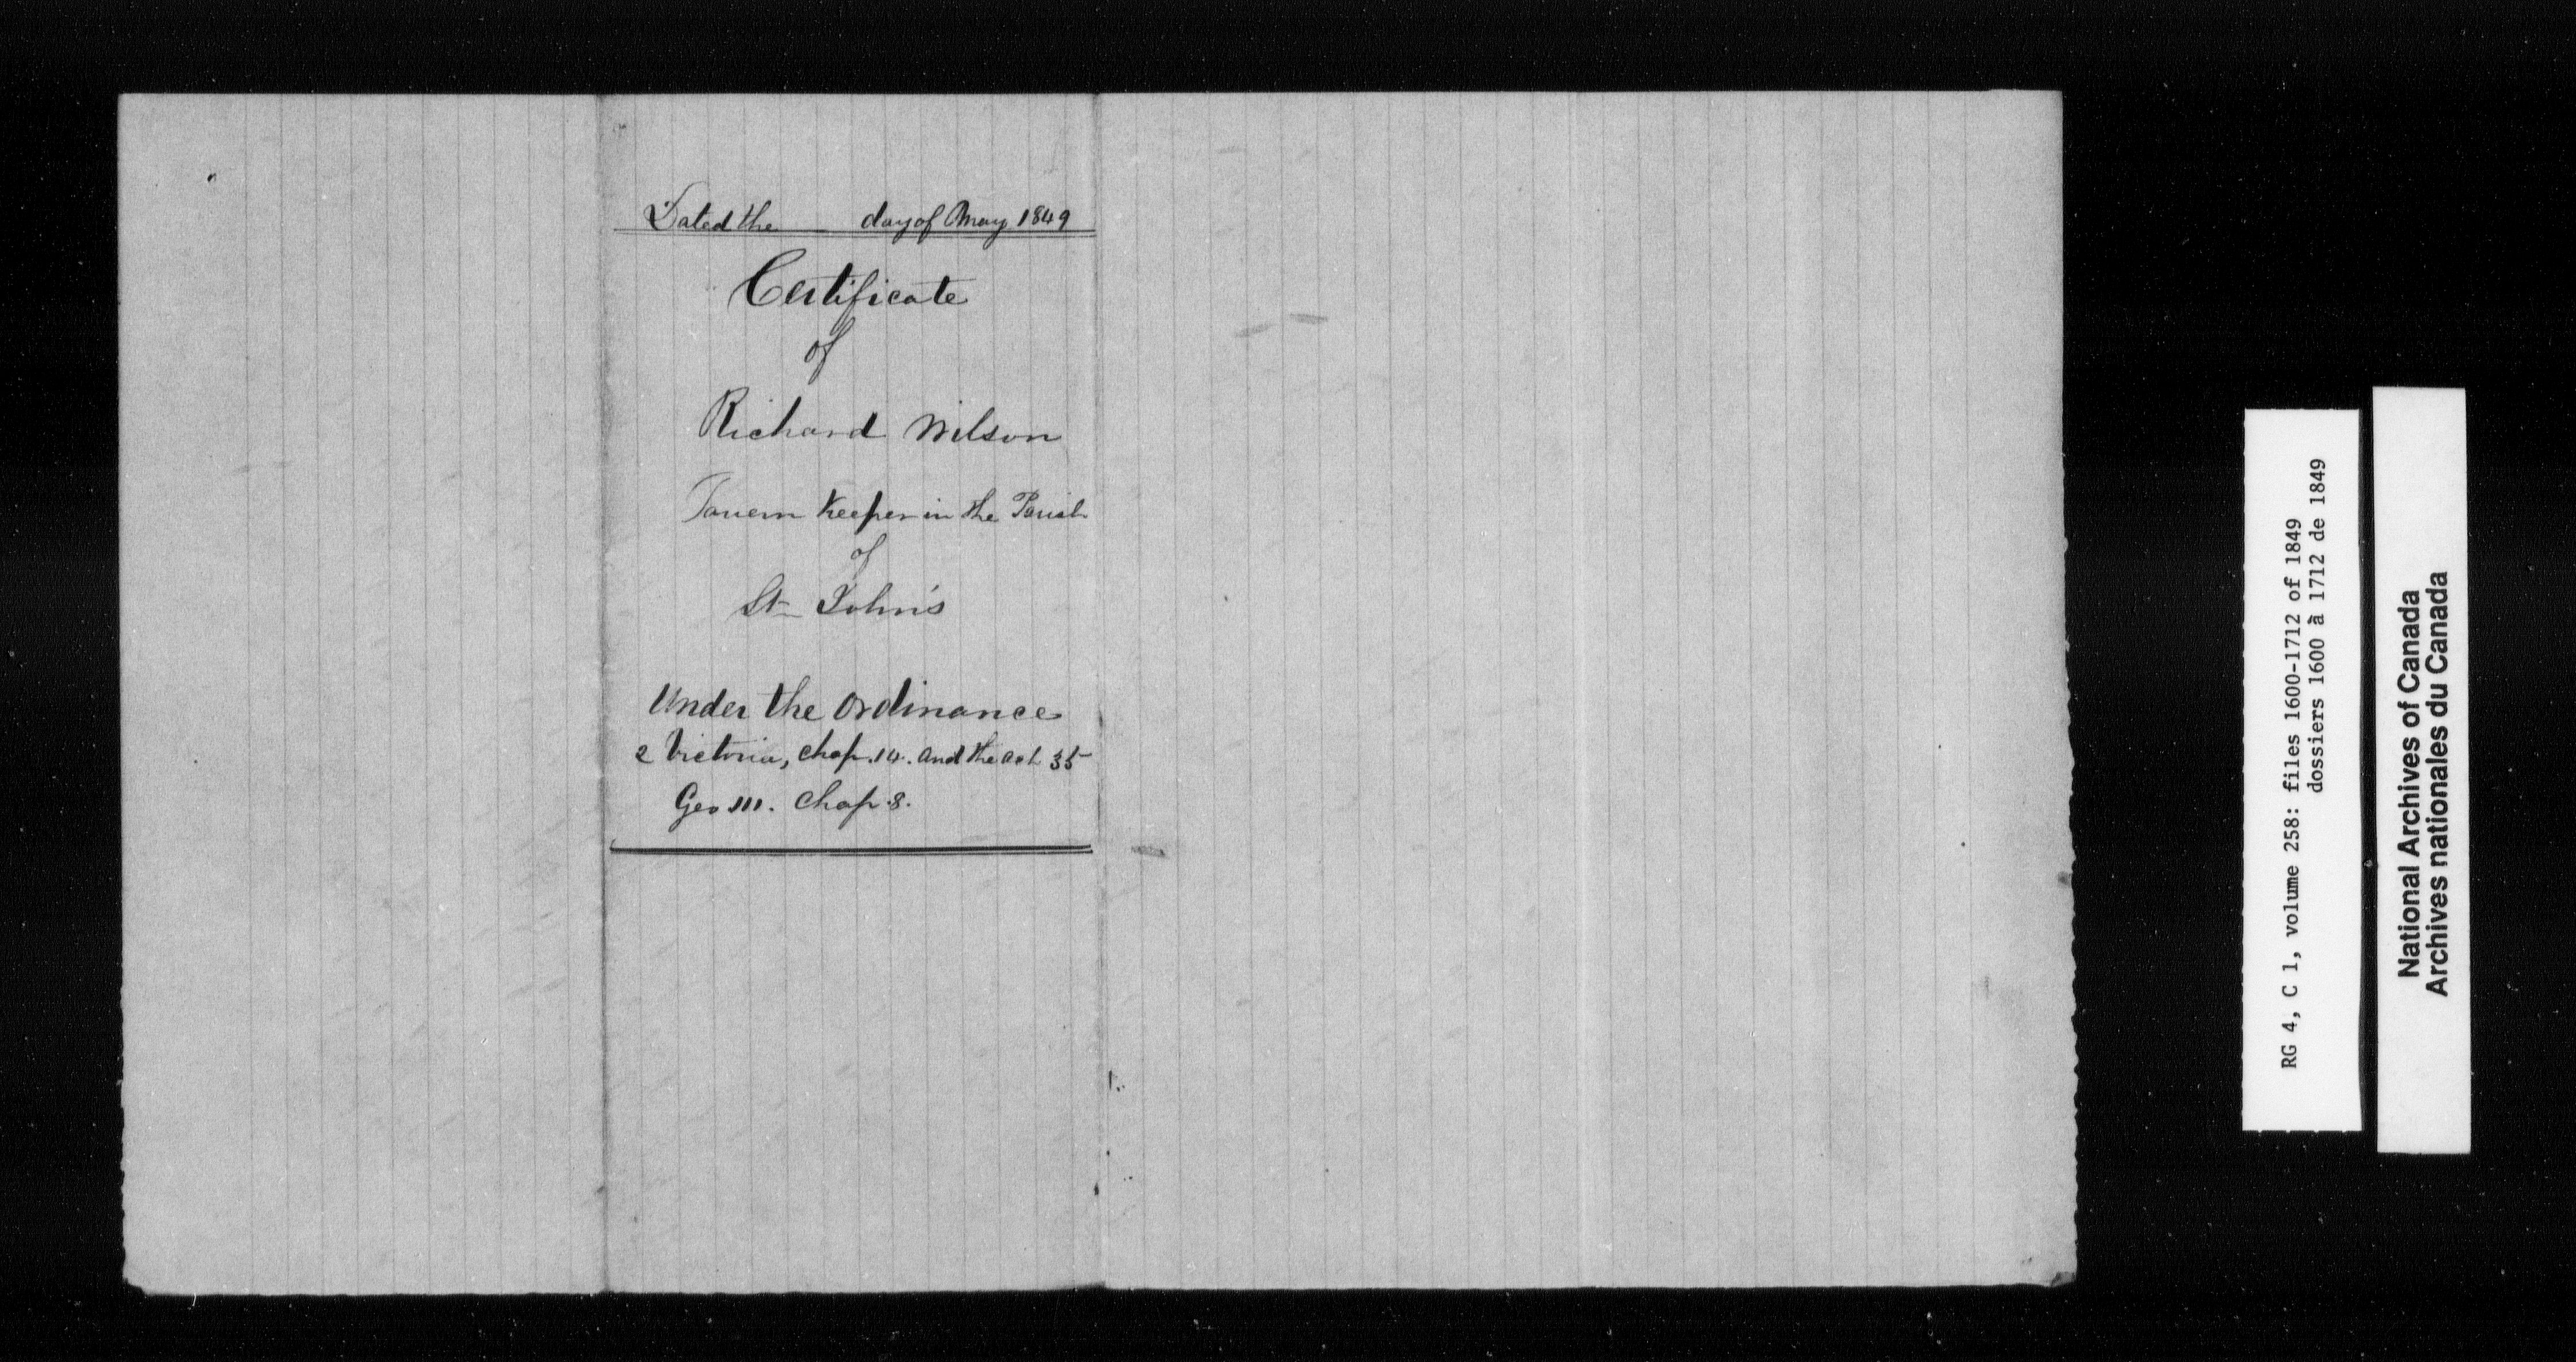 Dated the ___ day of May 1849
Certificate
of
Richard Wilson
Tavern Keeper in the Parish
of
St John's
Under the Ordinance
2 Victoria, Chap. 14. and the act 35
Geo III. Chap 8.
RG 4, C 1, volume 258: files 1600-1712 of 1849
dossiers 1600 à 1712 de 1849
National Archives of Canada
Archives nationales du Canada